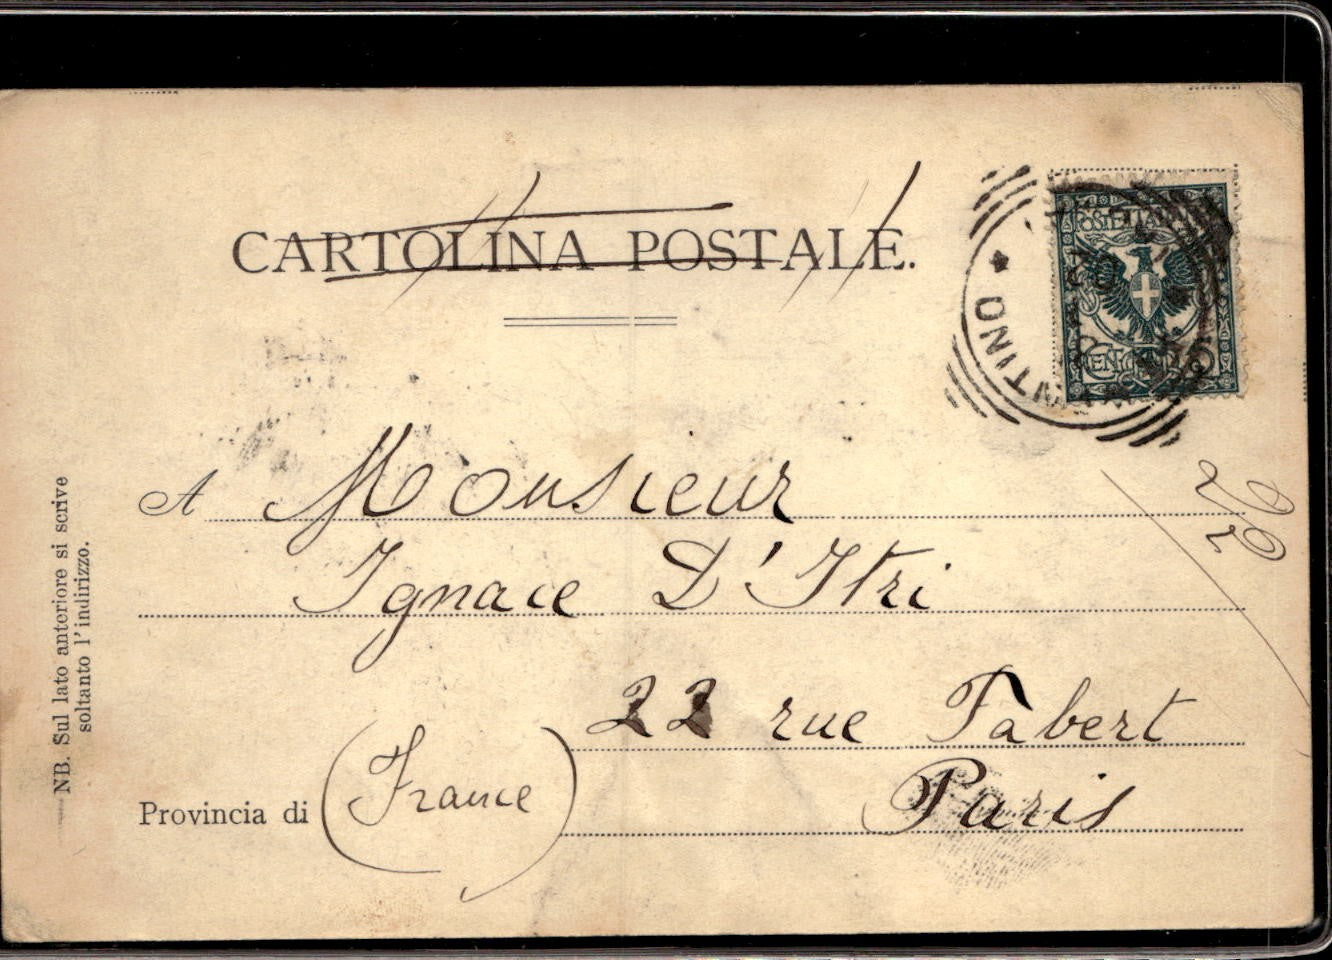 CARTOLINA POSTALE.
POSTE ITALIANE
CENT. 5
A Monsieur
Ignace D'Itri
22 rue Fabert
Paris
Provincia di (France)
NB. Sul lato anteriore si scrive
soltanto l'indirizzo.